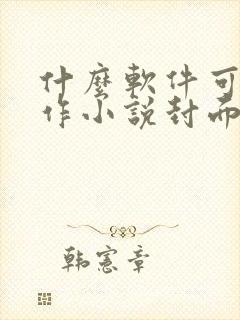 什麼軟件可
作小說封面
韩憲章